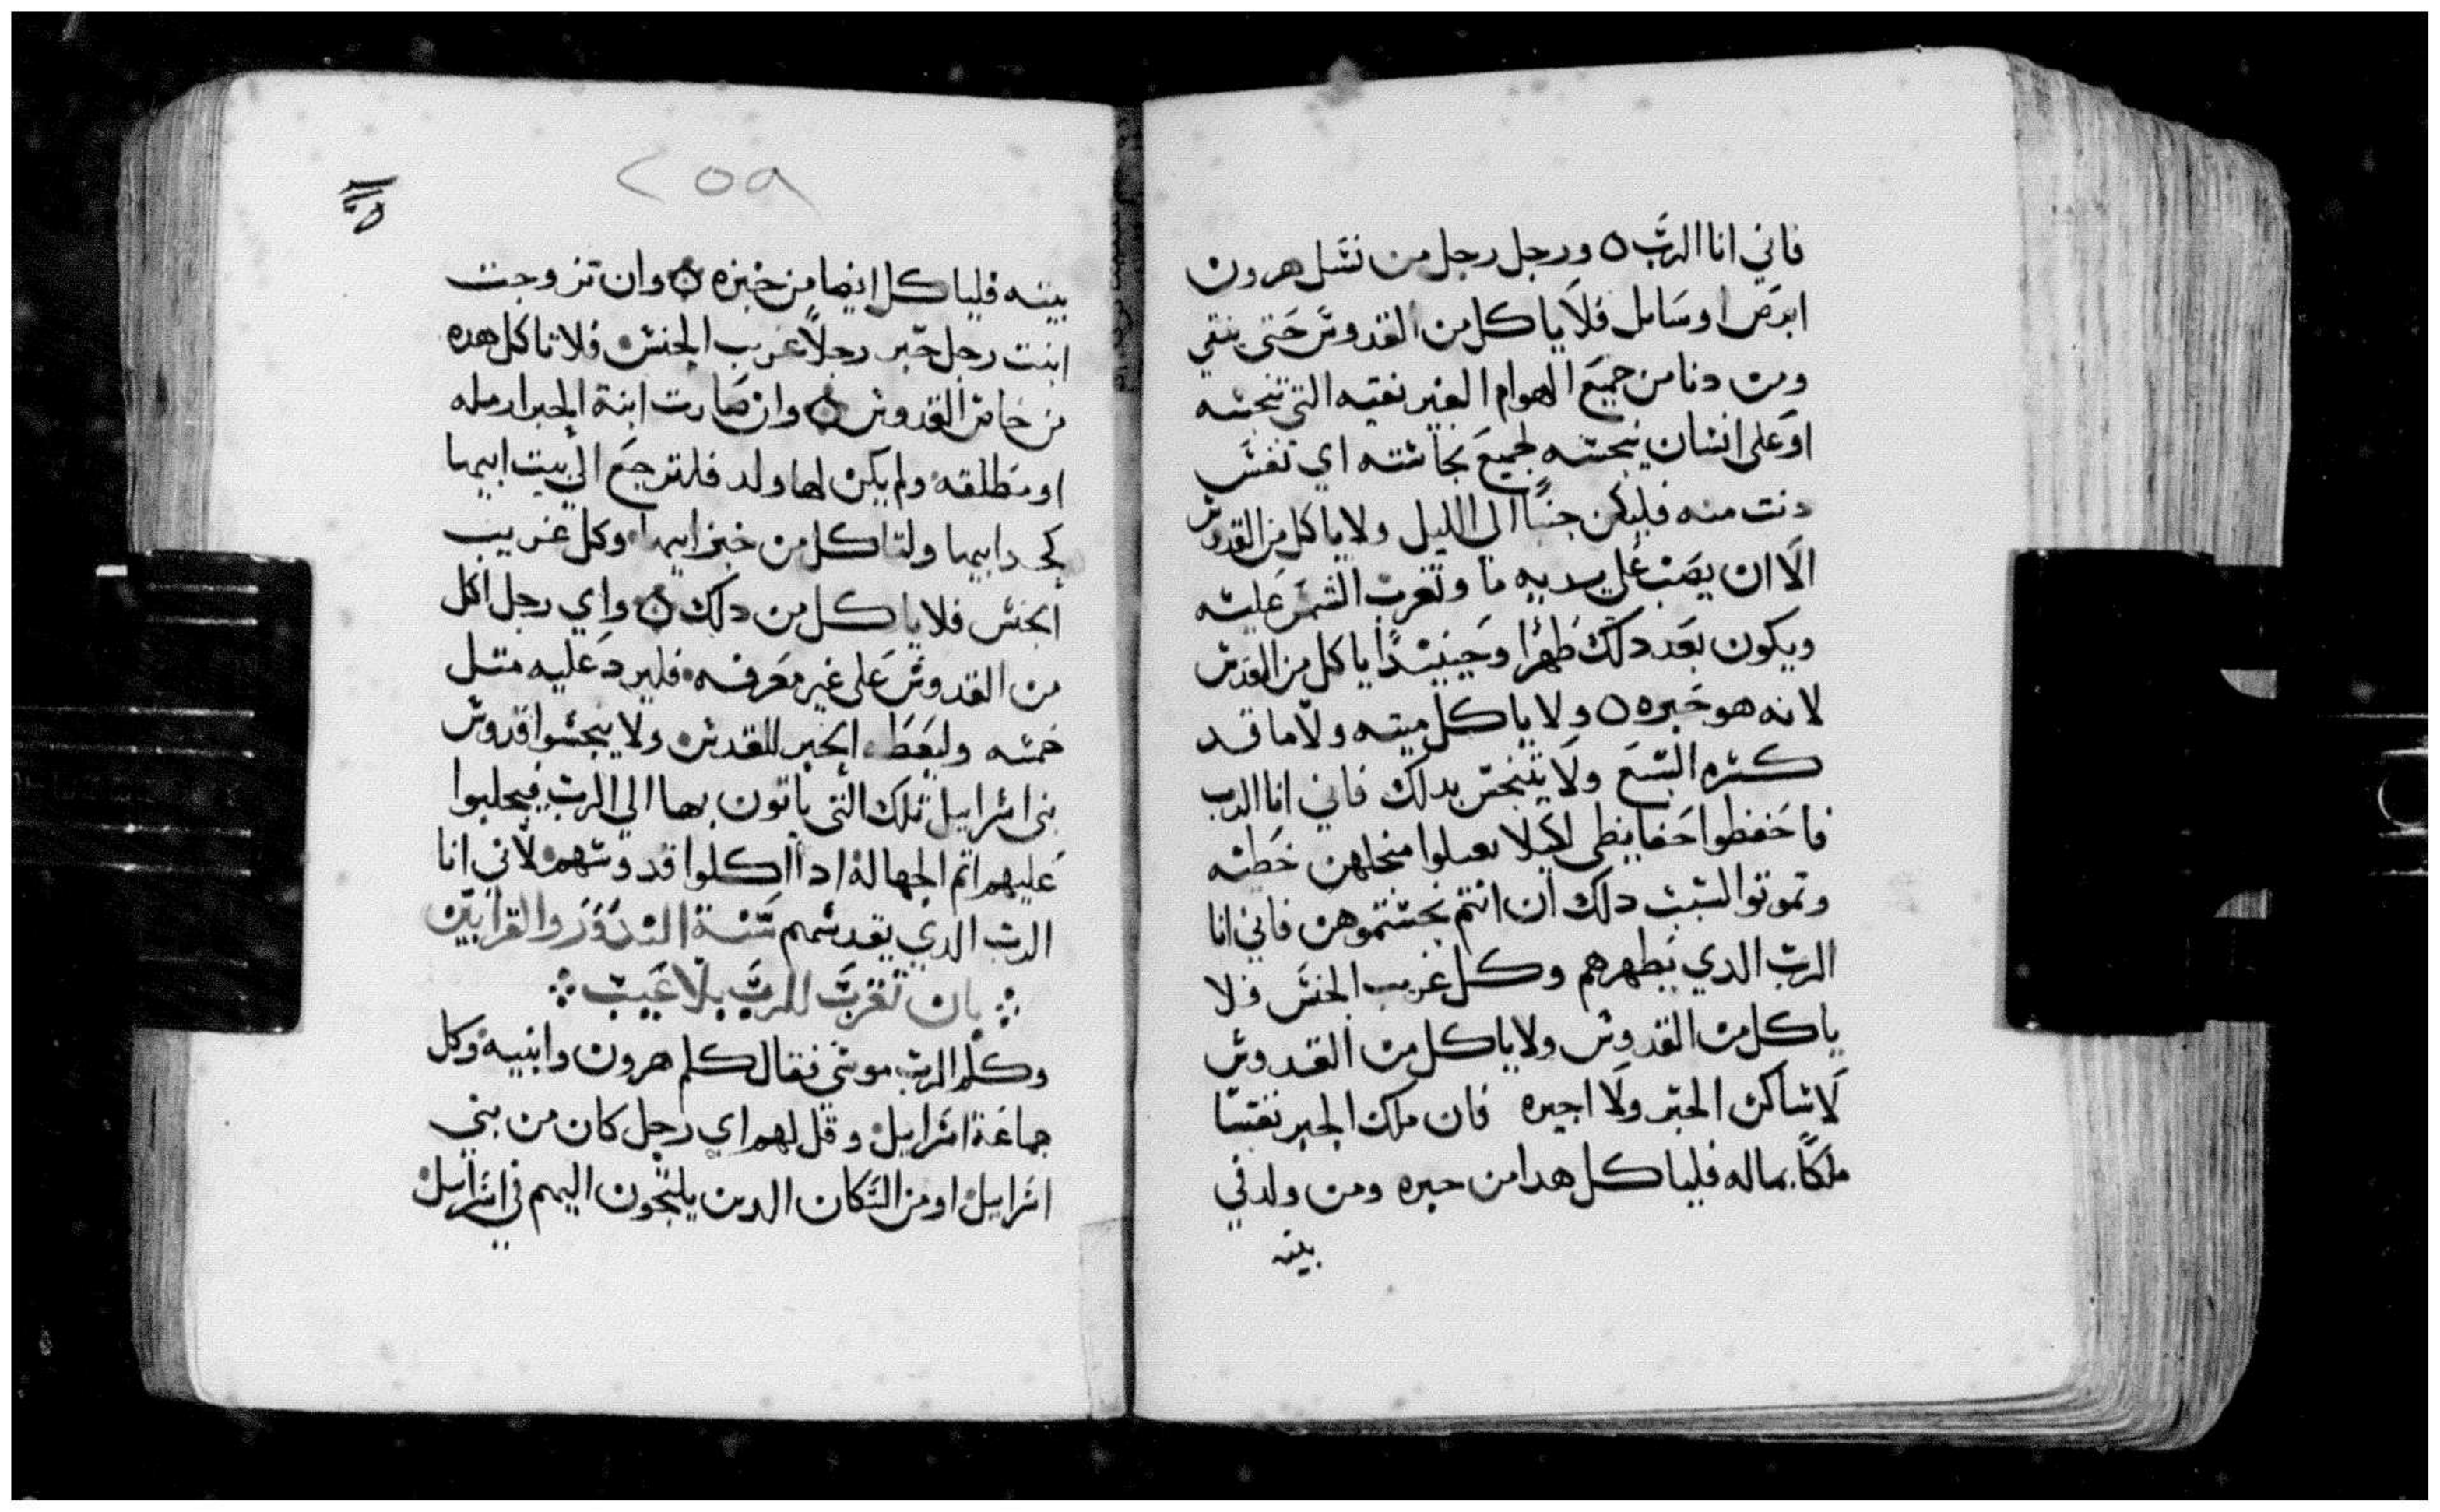 فاني انا الرب ه ورجل رجل من نسل هرون
ابرص او سايل فلا ياكل من القدوس حتى ينقي
ومن دنا من جميع الهوام الغير نقيه التي تنجسه
او على انسان ينجسه لجميع نجاسته اي نفس
دنت منه فليكن جنبًا الي الليل ولا ياكل من القدوس
الا ان يصب على يديه ما وتغرب الشمس عليه
ويكون بعد دلك طهرًا وحينيدًا ياكل من القدس
لانه هو خبزه ه ولا ياكل ميته ولا ما قد
كسره السبع ولا يتنجس بدلك فاني انا الرب
فاحفظوا حفايظي لكيلا تعملوا منجلهن خطيه
وتموتوا لسبب دلك ان انتم نجستموهن فاني انا
الرب الدي يطهرهم وكل غريب الجنس فلا
ياكل من القدوس ولا ياكل من القدوس
لا ساكن الحبر ولا اجيره فان ملك الحبر نفسًا
ملكًا بماله فلياكل هدا من خبزه ومن ولد في
بيته
٢٥٩
بيته فلياكل ايضا من خبزه ه وان تزوجت
ابنت رجل حبر رجلًا غريب الجنس فلا تاكل هده
من خاص القدوس ه وان صارت ابنة الحبر ارمله
او مطلقه ولم يكن لها ولد فلترجع الي بيت ابيها
كجد ابيها ولتاكل من خبز ابيها وكل غريب
الجنس فلا ياكل من دلك ه واي رجل اكل
من القدوس على غير معرفه فليرد عليه متل
خمسه وليعط الحبر للقدس ولا ينجسوا قدوس
بني اسراييل تلك التي ياتون بها الي الرب فيجلبوا
عليهم اتم الجهالة ادا اكلوا قدوسهم لاني انا
الرب الدي يقدسهم سنة الندور والقرابين
بان تقرب للرب بلا عيب
وكلم الرب موسى فقال كلم هرون وابنيه وكل
جماعة اسراييل وقل لهم اي رجل كان من بني
اسراييل او من السكان الدين يلتجون اليهم في اسراييل